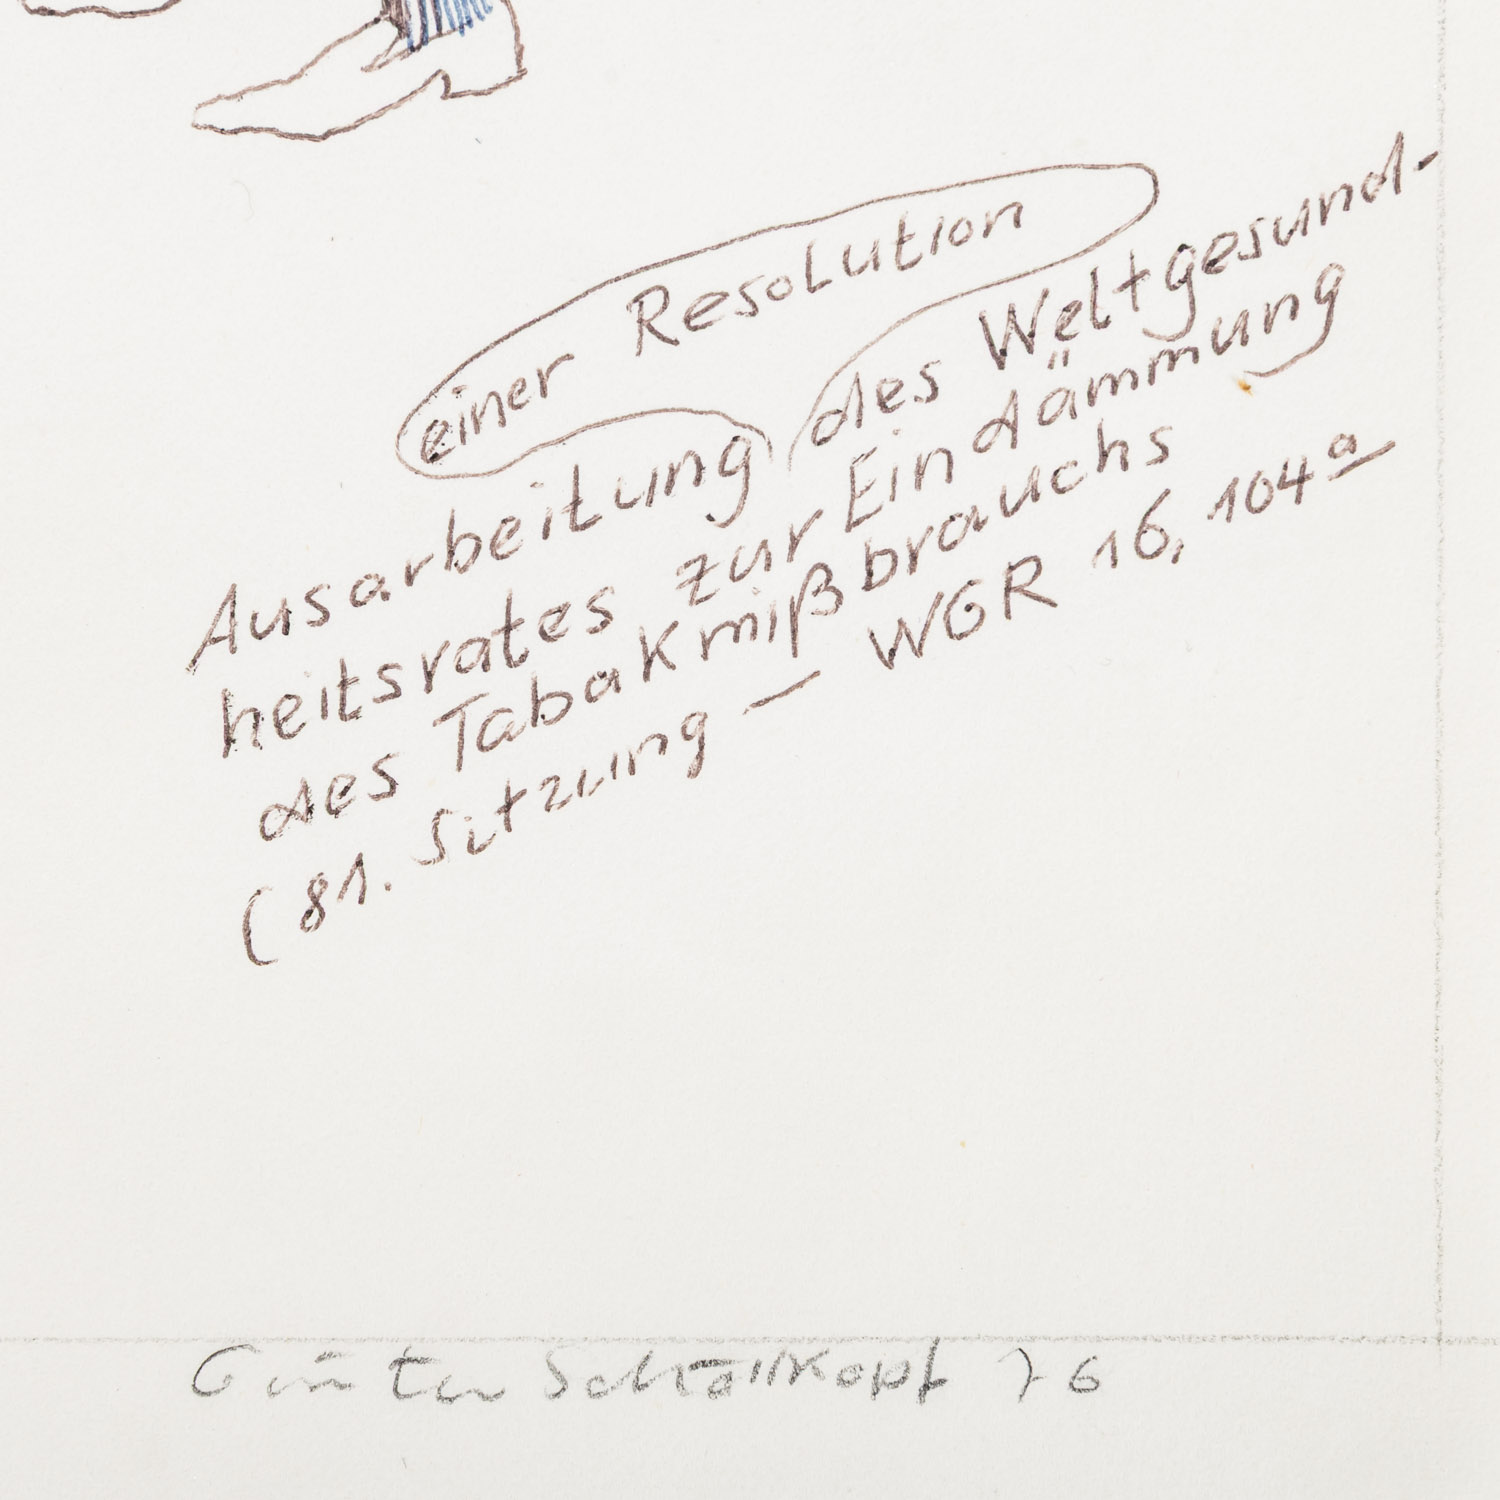 einer Resolution
Ausarbeitung des Weltgesund-
heitsrates zur Eindämmung
des Tabakmißbrauchs
(81. Sitzung — WGR 16, 104a
Günter Schöllkopf 76